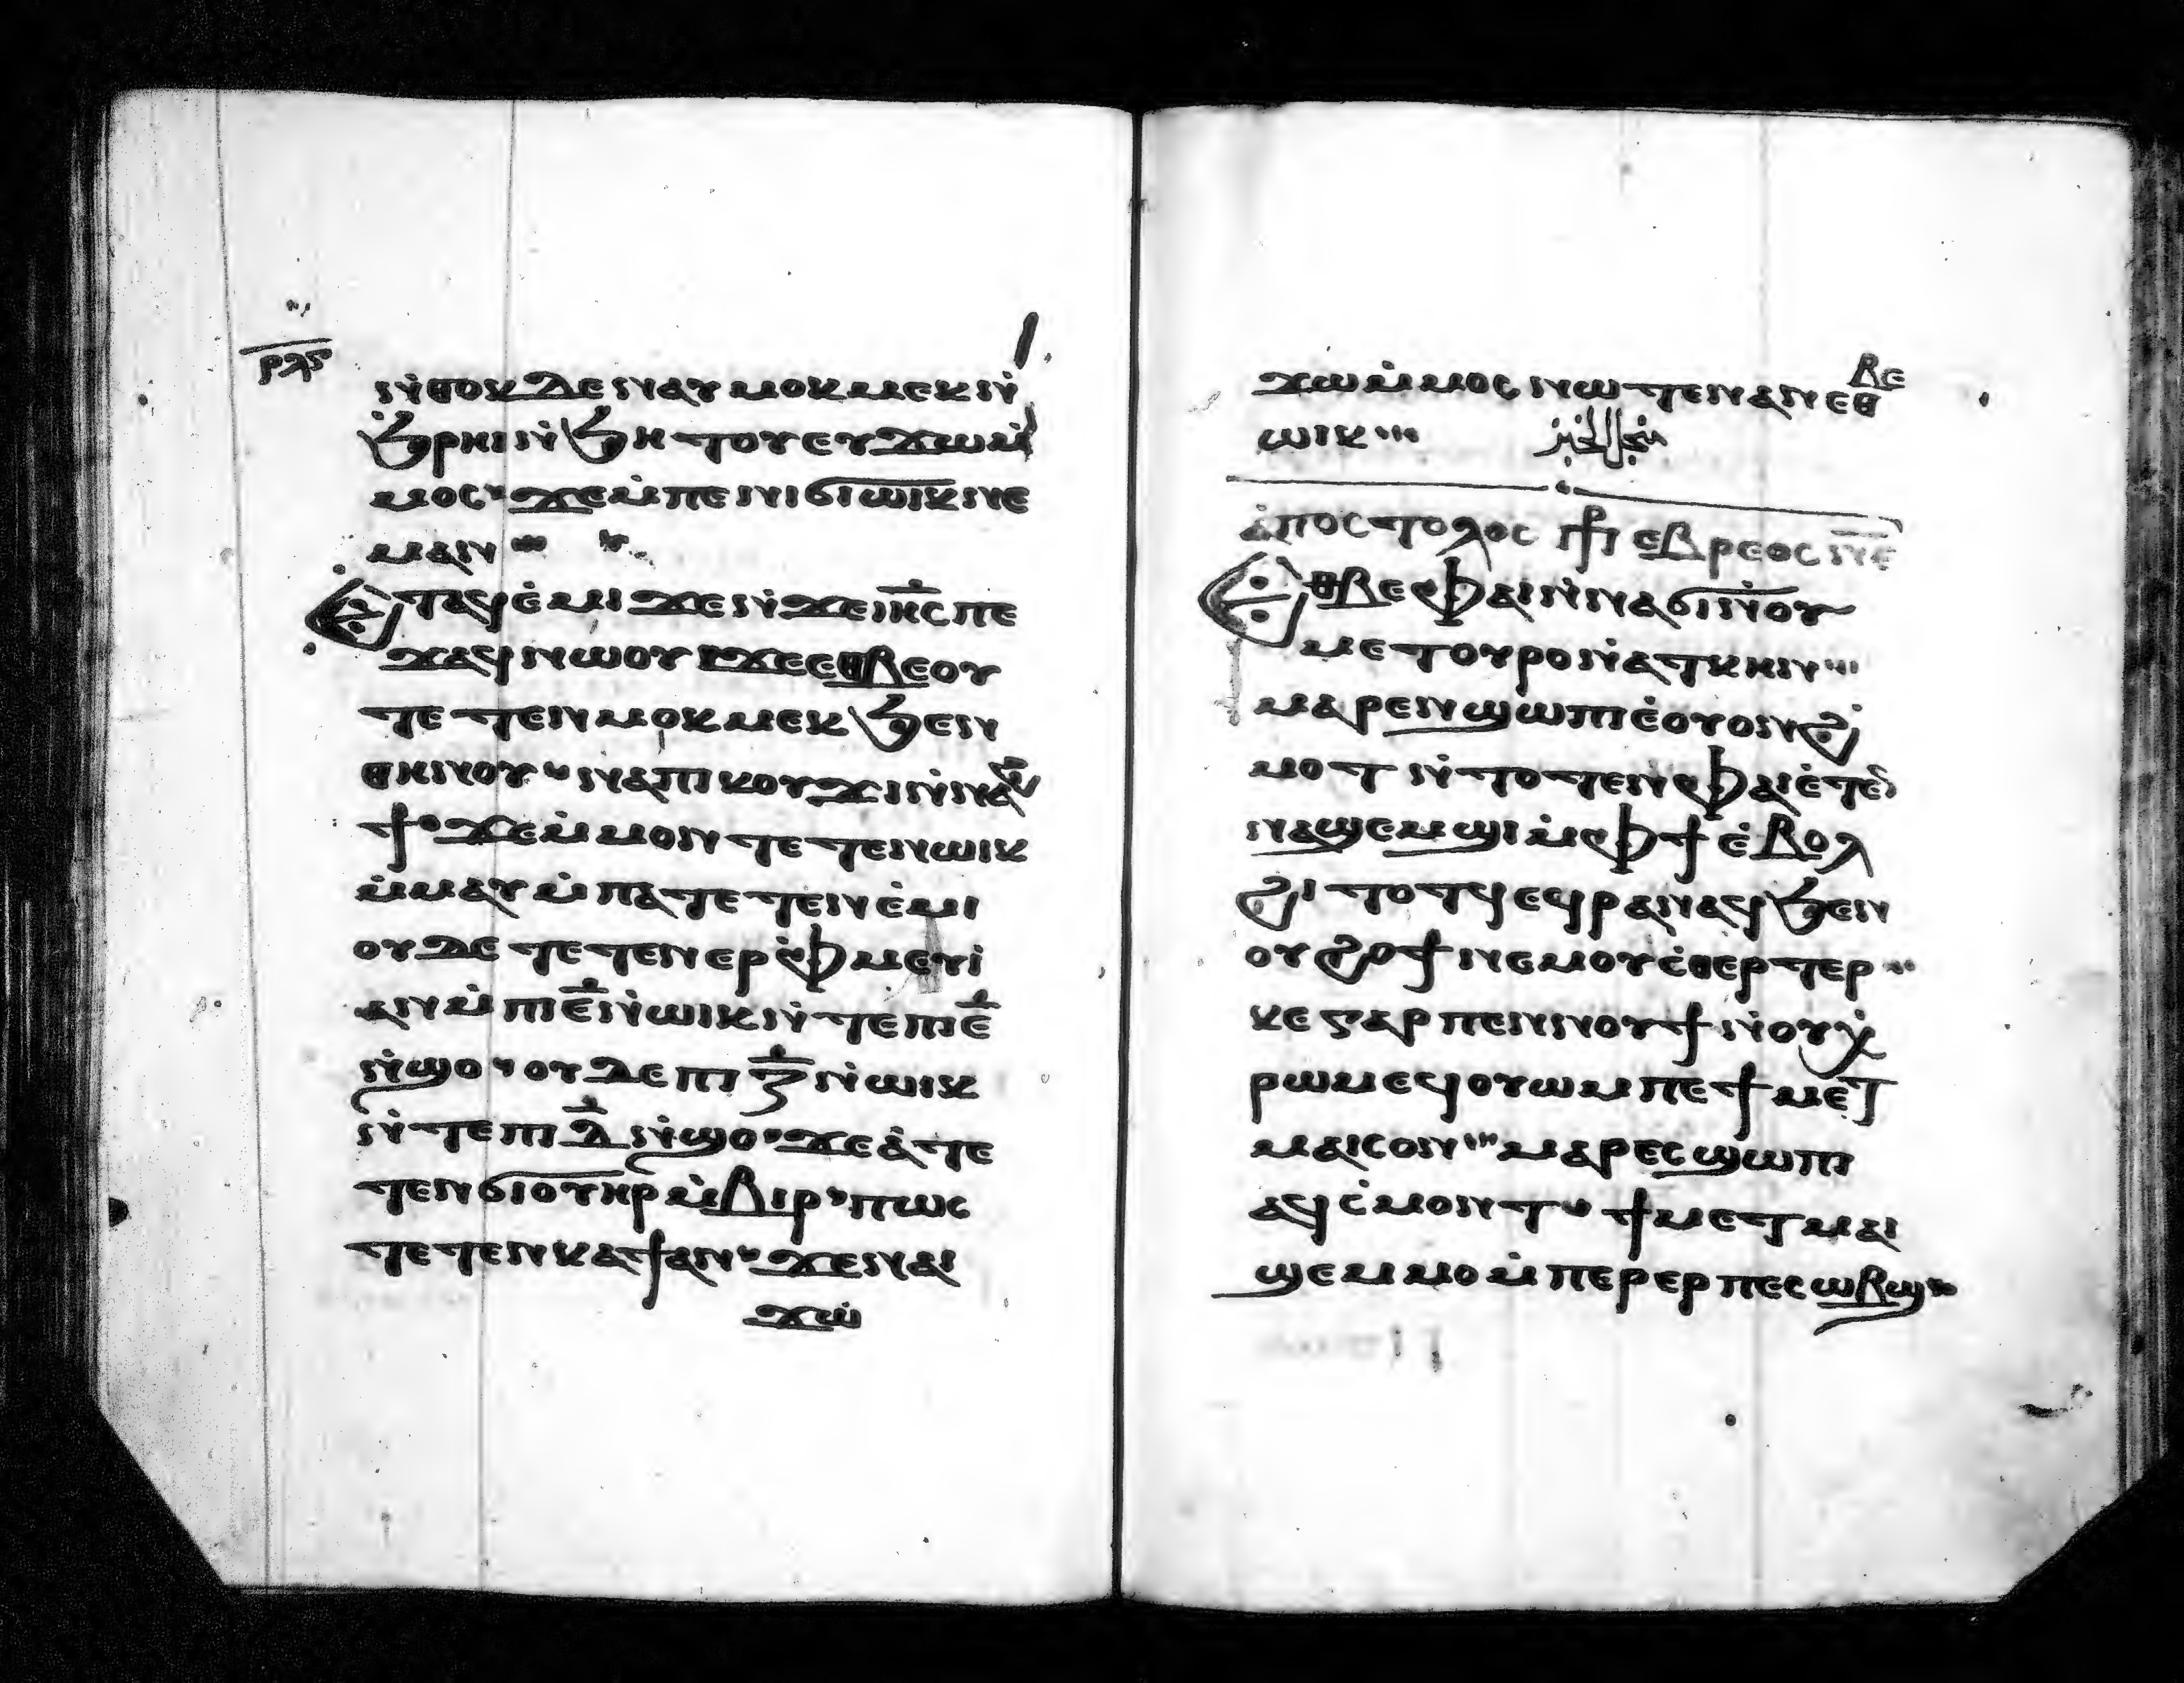 ⲣⲗⲋ
ⲛ̇ⲑⲟⲕ ⲇⲉ ⲛⲁⲩⲙⲟⲕⲙⲉⲕ ⲛ̇
ϧⲣⲏⲓ ⲛ̇ϧⲏⲧⲟⲩ ⲉⲩϫⲱ ⲙ̇
ⲙⲟⲥ ϫⲉ ⲙ̇ⲡⲉⲛⲓϭⲓ ⲱⲓⲕ ⲛⲉ
ⲙⲁⲛ
Ⲉⲧⲁϥⲉ̇ⲙⲓ ϫⲉ ⲛ̇ϫⲉ ⲓⲏ̅ⲥ̅ ⲡⲉ
ϫⲁϥ ⲛⲱⲟⲩ ϫⲉ ⲉⲑⲃⲉ ⲟⲩ
ⲧⲉⲧⲉⲛⲙⲟⲕⲙⲉⲕ ϧⲉⲛ
ⲑⲏⲛⲟⲩ ⲛⲁⲡⲓⲕⲟⲩϫⲓ ⲛ̇ⲛⲁϩ
ϯ ϫⲉ ⲙ̇ⲙⲟⲛⲧⲉⲧⲉⲛ ⲱⲓⲕ
ⲙ̇ⲙⲁⲩ ⲙ̇ⲡⲁⲧⲉⲧⲉⲛⲉ̇ⲙⲓ
ⲟⲩⲇⲉ ⲧⲉⲧⲉⲛⲉⲣⲫ̇ⲙⲉⲩⲓ̇
ⲁⲛ ⲙ̇ⲡⲓⲉ̅ ⲛ̇ⲱⲓⲕ ⲛ̇ⲧⲉ ⲡⲓⲉ̅
ⲛ̇ϣⲟ ⲟⲩⲇⲉ ⲡⲓⲍ̅ ⲛ̇ⲱⲓⲕ
ⲛ̇ⲧⲉ ⲡⲓⲇ̅ ⲛ̇ϣⲟ ϫⲉ ⲁ̇ⲧⲉ
ⲧⲉⲛϭⲓ ⲟⲩⲏⲣ ⲙ̇ⲃⲓⲣ ⲡⲱⲥ
ⲧⲉⲧⲉⲛⲕⲁϯ ⲁⲛ ϫⲉ ⲛⲁⲓ
ϫⲱ
ϫⲱ ⲙ̇ⲙⲟⲥ ⲛⲱⲧⲉⲛ ⲁⲛ ⲉⲑⲃⲉ
ⲱⲓⲕ
ⲁ̇ⲡⲟⲥⲧⲟⲗⲟⲥ ⲡⲣⲟⲥ ⲉⲃⲣⲉⲟⲥ ⲛⲉ
Ⲉⲑⲃⲉ ⲫⲁⲓ ⲛ̇ⲛⲁϭⲓ ⲛ̇ⲟⲩ
ⲙⲉⲧⲟⲩⲣⲟ ⲛ̇ⲁⲧⲕⲏⲛ
ⲙⲁⲣⲉⲛϣⲱⲡⲓ ⲉ̇ⲟⲩⲟⲛ ϩ̇
ⲙⲟⲧ ⲛ̇ⲧⲟⲧⲉⲛ ⲫⲁⲓ ⲉ̇ⲧⲉⲛ
ⲛⲁϣⲉⲙϣⲓ ⲙ̇ⲫϯ ⲉ̇ⲃⲟⲗ
ϩⲓⲧⲟⲧϥ ⲉϥⲣⲁⲛⲁϥ ϧⲉⲛ
ⲟⲩϩⲟϯ ⲛⲉⲙ ⲟⲩⲥ̇ⲑⲉⲣⲧⲉⲣ
ⲕⲉ ⲅⲁⲣ ⲡⲉⲛⲛⲟⲩϯ ⲛ̇ⲟⲩⲭ̇
ⲣⲱⲙ ⲉϥⲟⲩⲱⲙ ⲡⲉ ϯⲙⲉⲧ
ⲙⲁⲓⲥⲟⲛ ⲙⲁⲣⲉⲥϣⲱⲡⲓ
ⲁϥⲥ̇ⲙⲟⲛⲧ ϯⲙⲉⲧⲙⲁⲓ
ϣⲉⲙⲙⲟ ⲙ̇ⲡⲉⲣⲉⲣⲡⲉⲥⲱⲃϣ